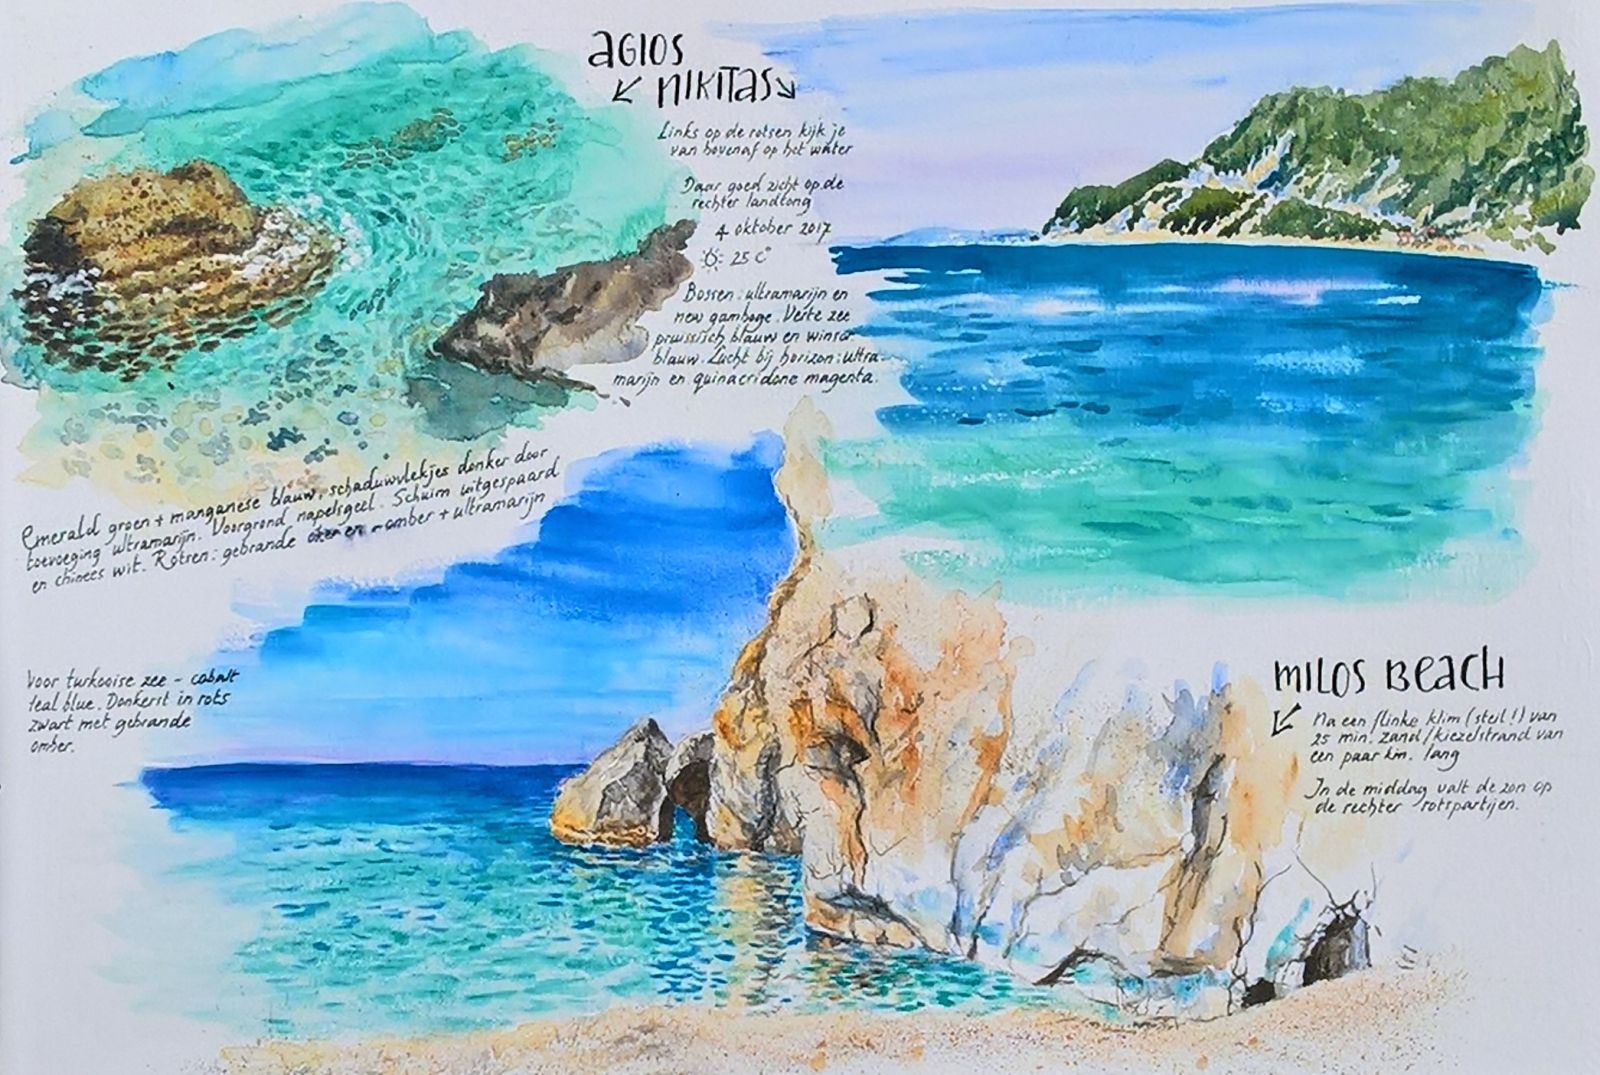 AGIOS
NIKITAS
Links op de rotsen kijk je
van bovenaf op het water
Daar goed zicht op de
rechter landtong
4 oktober 2017
25 C°
Bossen: ultramarijn en
new gamboge. Verte zee
pruissisch blauw en winsor
blauw. Lucht bij horizon: ultra-
marijn en quinacridone magenta.
Emerald groen + manganese blauw, schaduwvlekjes donker door
toevoeging ultramarijn. Voorgrond napelsgeel. Schuim uitgespaard
en chinees wit. Rotsen: gebrande oker en omber + ultramarijn
Voor turkooise zee - cobalt
teal blue. Donkerst in rots
zwart met gebrande
omber.
MILOS BEACH
Na een flinke klim (steil!) van
25 min. zand/kiezelstrand van
een paar km. lang
In de middag valt de zon op
de rechter rotspartijen.